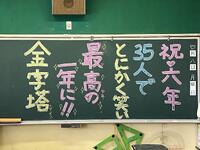 祝♡六年
35人で
とにかく笑い
最高の
一年に!!
金字塔